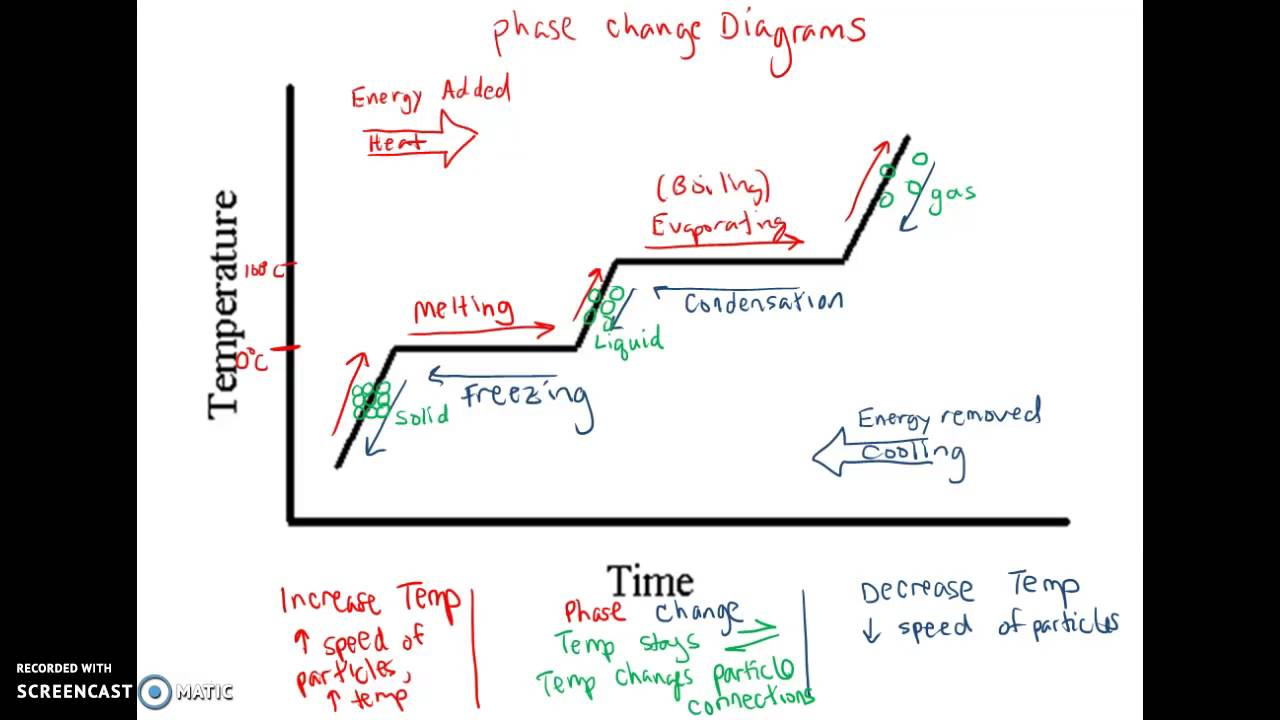 phase change Diagrams
Energy Added
Heat
(Boiling)
Evaporating
gas
Temperature
100°C
Condensation
Melting
Liquid
0°C
Freezing
Solid
Energy removed
Cooling
Time
Increase Temp
↑ speed of
particles,
↑ temp
Phase change
Temp stays
Temp changes particle
connections
Decrease Temp
↓ speed of particles
RECORDED WITH
SCREENCAST MATIC